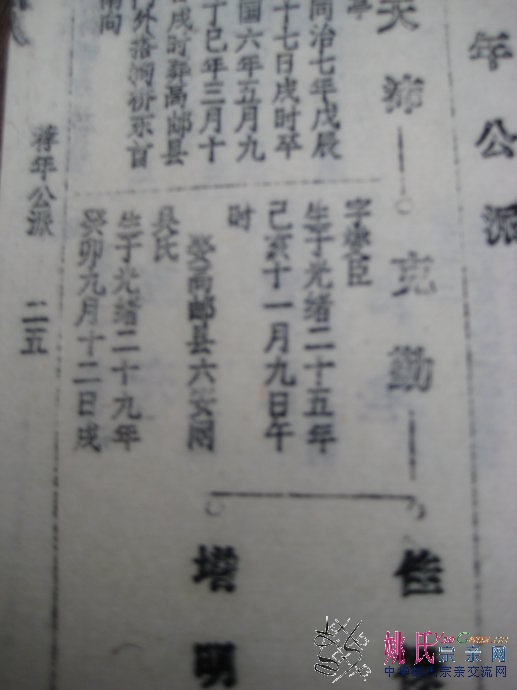 年公派
天沛
克勤
佳
亭
同治七年戊辰
十七日戌时卒
国六年五月九
丁巳年三月十
戌时葬高邮县
南向
臣
生于光绪二十五年
己亥十一月九日午
时
娶高邮县六安闸
吴氏
生于光绪二十九年
癸卯九月十二日戌
明
年公派 二五
姚氏宗亲网
宗亲交流网